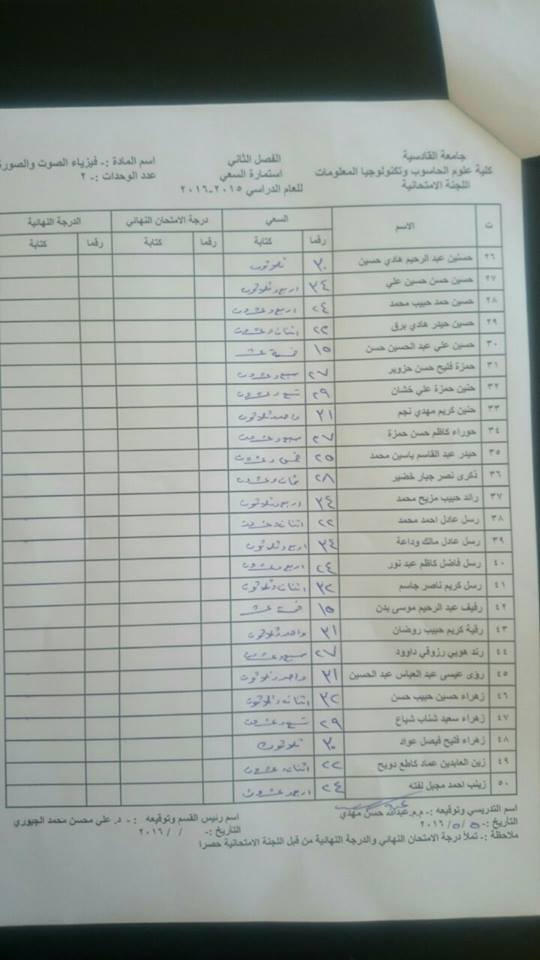 جامعة القادسية
كلية علوم الحاسوب وتكنولوجيا المعلومات
اللجنة الامتحانية
الفصل الثاني
استمارة السعي
للعام الدراسي ٢٠١٥-٢٠١٦
اسم المادة :- فيزياء الصوت والصورة
عدد الوحدات :- ٢
ت الاسم السعي درجة الامتحان النهائي الدرجة النهائية
رقما كتابة رقما كتابة رقما كتابة
٢٦ حسنين عبد الرحيم هادي حسين ٣٠ ثلاثون
٢٧ حسين حسن حسين علي ٣٤ اربع وثلاثون
٢٨ حسين حمد حبيب محمد ٢٤ اربع وعشرون
٢٩ حسين حيدر هادي برق ٢٢ اثنان وعشرون
٣٠ حسين علي عبد الحسين حسن ١٥ خمسة عشر
٣١ حمزة فليح حسن حزوير ٢٧ سبع وعشرون
٣٢ حنين حمزة علي خشان ٢٩ تسع وعشرون
٣٣ حنين كريم مهدي نجم ٣١ واحد وثلاثون
٣٤ حوراء كاظم حسن حمزة ٢٧ سبع وعشرون
٣٥ حيدر عبد القاسم ياسين محمد ٢٥ خمس وعشرون
٣٦ ذكرى نصر جبار خضير ٢٨ ثمان وعشرون
٣٧ رائد حبيب مزيح محمد ٣٤ اربع وثلاثون
٣٨ رسل عادل احمد محمد ٢٢ اثنان وعشرون
٣٩ رسل عادل مالك وداعة ٣٤ اربع وثلاثون
٤٠ رسل فاضل كاظم عبد نور ٢٤ اربع وعشرون
٤١ رسل كريم ناصر جاسم ٣٢ اثنان وثلاثون
٤٢ رفيف عبد الرحيم موسى بدن ١٥ خمسة عشر
٤٣ رقية كريم حبيب روضان ٣١ واحد وثلاثون
٤٤ رند هوبي رزوقي داوود ٢٧ سبع وعشرون
٤٥ رؤى عيسى عبد العباس عبد الحسين ٣١ واحد وثلاثون
٤٦ زهراء حسين حبيب حسن ٣٢ اثنان وثلاثون
٤٧ زهراء سعيد شناب شياع ٢٩ تسع وعشرون
٤٨ زهراء فليح فيصل عواد ٣٠ ثلاثون
٤٩ زين العابدين عماد كاطع دويح ٢٢ اثنان وعشرون
٥٠ زينب احمد مجبل لفته ٢٤ اربع وعشرون
اسم التدريسي وتوقيعه :- م.م.عبدالله حسن مهدي
التاريخ :- ٥ / ٥ / ٢٠١٦
اسم رئيس القسم وتوقيعه :- د. علي محسن محمد الجبوري
التاريخ :- / / ٢٠١٦
ملاحظة :- تملأ درجة الامتحان النهائي والدرجة النهائية من قبل اللجنة الامتحانية حصرا